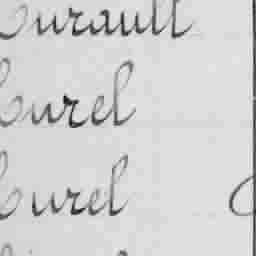 Curault
Curel
Curel